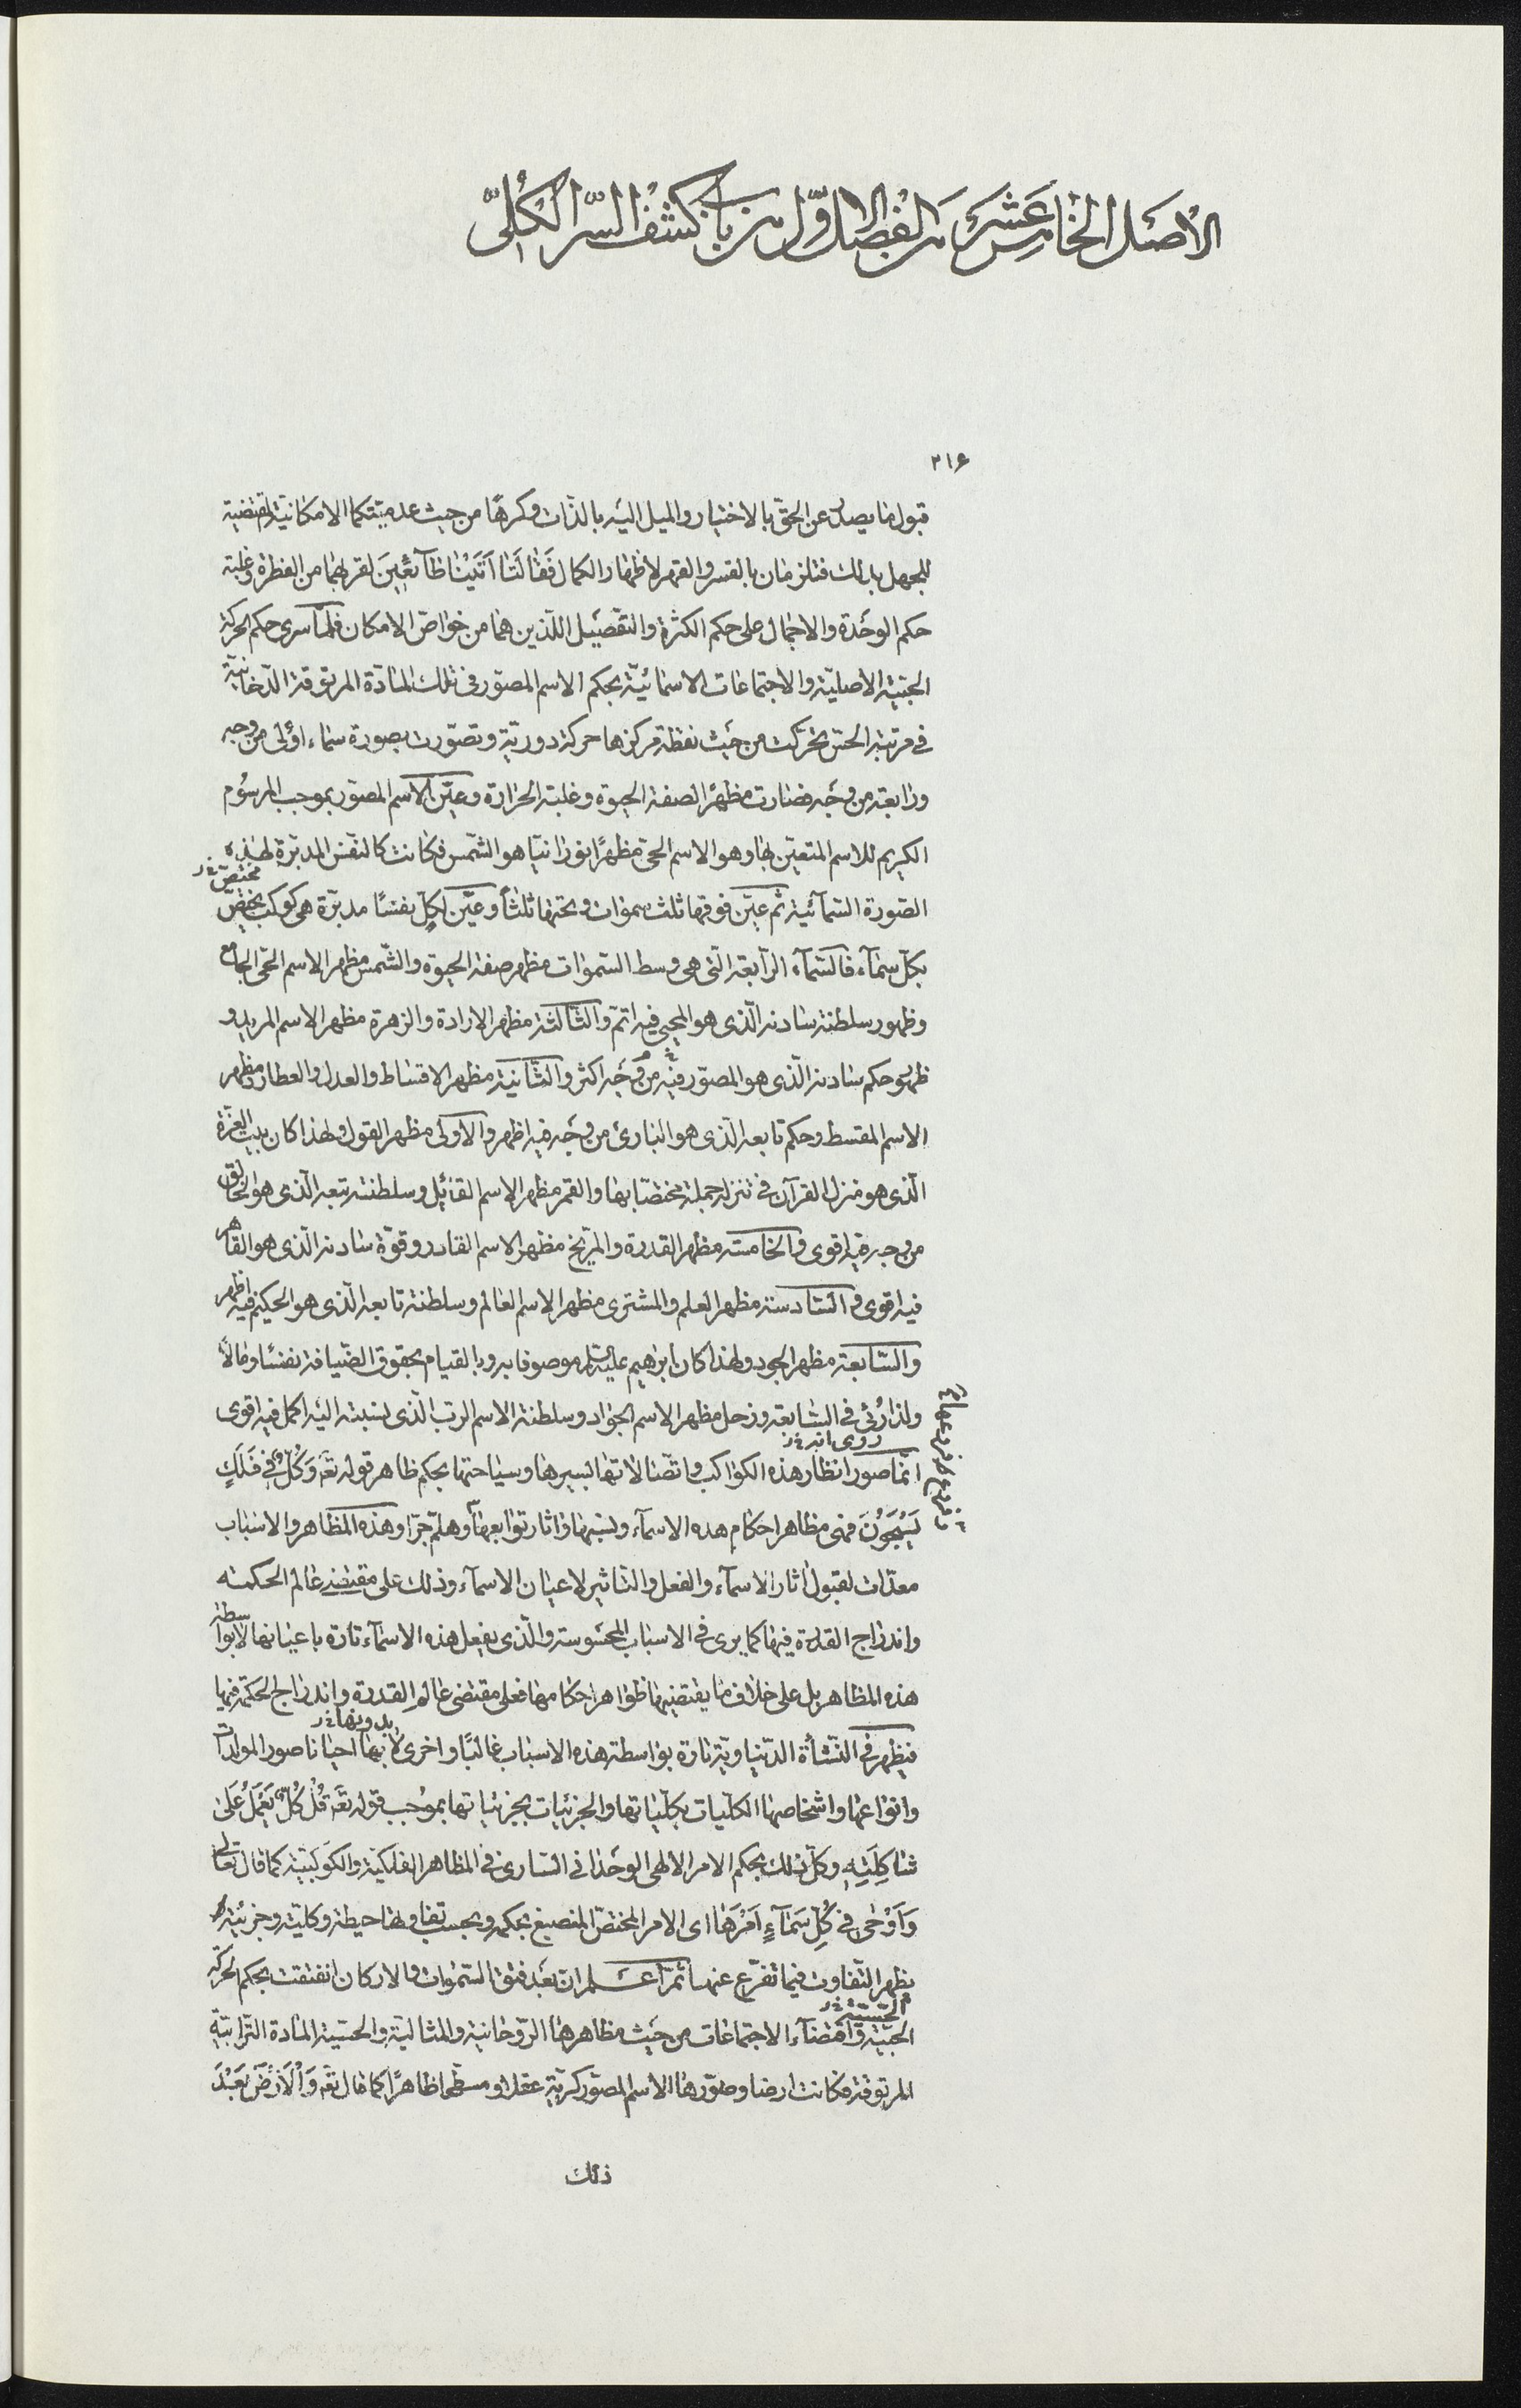 الاصل الخامس عشر من الفصل الاوّل من باب كشف السّر الكلّى
٢١۶
قبول ما يصدر عن الحقّ بالاختيار والميل اليه بالذّات وكرهًا من حيث عدميّتكما الامكانيّة المقتضية
للجهل بذلك فتلزمان بالقسر والقهر لاظهار الكمال فَقٰالَتٰا اَتَيْنٰا طٰآئِعٖينَ لقربهما من الفطرة وغلبة
حكم الوحدة والاجمال على حكم الكثرة والتفصيل اللّذين هما من خواصّ الامكان فلمّا سرى حكم الحركة
الحبّيّة الاصليّة والاجتماعات الاسمائيّة بحكم الاسم المصوّر فى تلك المادّة المرتوقة الدّخانيّة
فى مرتبة الحسّ تحرّكت من حيث نقطة مركزها حركة دوريّة وتصوّرت بصورة سماء اولى من وجه
ورابعة من وجه فصارت مظهرًا لصفة الحيوة وغلبة الحرارة وعيّن الاسم المصوّر بموجب المرسوم
الكريم للاسم المتعيّن بها وهو الاسم الحىّ مظهرًا نورانيّا هو الشّمس فكانت كالنّفس المدبّرة لهذه
الصّورة السّمآئية ثم عيّن فوقها ثلث سموات وتحتها ثلثاً وعيّن لكلّ نفسًا مدبّرة هى كوكب يختصّ
مختصّ خ ر
بكلّ سمآء فالسّمآء الرّابعة الّتى هى وسط السّموات مظهر صفة الحيوة والشّمس مظهر الاسم الحىّ الجامع
وظهور سلطنة سادنه الّذى هو المحيى فيه اتمّ والثّالثة مظهر الارادة والزهرة مظهر الاسم المريد و
ظهور حكم سادنه الّذى هو المصوّر فيه من وجه اكثر والثّانية مظهر الاقساط والعدل والعطارد مظهر
الاسم المقسط وحكم تابعه الّذى هو البارئ من وجه فيه اظهر والاولى مظهر القول ولهذا كان بيت العزّة
الّذى هو منزل القرآن فى تنزله جملة مختصّا بها والقمر مظهر الاسم القائل وسلطنة تبعه الّذى هو الخالق
من وجه فيه اقوى والخامسة مظهر القدرة والمرّيخ مظهر الاسم القادر وقوّة سادنه الّذى هو القاهر
فيه اقوى والسّادسة مظهر العلم والمشترى مظهر الاسم العالم وسلطنة تابعه الّذى هو الحكيم فيه اظهر
والسّابعة مظهر الجود ولهذا كان ابرٰهيم عليه السلام موصوفا به وبالقيام بحقوق الضّيافة نفسًا ومالاً
ولذا رُئى فى السّابعة وزحل مظهر الاسم الجواد وسلطنة الاسم الربّ الّذى نسبته اليه اكمل فيه اقوى
روى انه خ ر
انّما صور انظار هذه الكواكب واتّصالاتها بسيرها وسياحتها بحكم ظاهر قوله تعٰ وَكُلٌّ فِى فَلَكٍ
يَسْبَحُونَ فهى مظاهر احكام هذه الاسمآء ونسبها واثار توابعها وهلمّ جرّا وهذه المظاهر والاسباب
معدّات لقبول اثار الاسمآء والفعل والتّاثير لاعيان الاسمآء وذلك على مقتضى عالم الحكمة
واندراج القدرة فيها كما يرى فى الاسباب المحسوسة والّذى يفعل هذه الاسمآء تارة باعيانها لا بواسطة
هذه المظاهر بل على خلاف ما يقتضيها ظواهر احكامها فعلى مقتضى عالم القدرة واندراج الحكمة فيها
فيظهر فى النّشأة الدّنياويّة تارة بواسطة هذه الاسباب غالبًا واخرى لا بها احيانا صور المولّدات
بدونها خ ر
وانواعها واشخاصها الكلّيات بكلّياتها والجزئيات بجزئياتها بموجب قوله تعٰ قُلْ كُلٌّ يَعْمَلُ عَلىٰ
شٰاكِلَتِهِ وكلّ ذلك بحكم الامر الالهى الوحدانى السّارى فى المظاهر الفلكيّة والكوكبيّة كما قال تعالى
وَاَوْحٰى فى كُلِّ سَمٰآءٍ اَمْرَهٰا اى الامر المختصّ المنصبغ بحكمه وبحسب تفاوتها حيطة وكليّة وجزئيّة
يظهر التّفاوت فيما تفرّع عنها ثمّ اعلم ان بعد فتق السّموات والاركان انفتقت بحكم الحركة
الحبّيّة واقتضآء الاجتماعات من حيث مظاهرها الرّوحانية والمثاليّة والحسّية المادة التّرابيّة
الحسّيّة خ ر
المرتوقة فكانت ارضا وصوّرها الاسم المصوّر كريّة عقلا ومسطّحا ظاهرًا كما قال تعٰ وَالْاَرْضَ بَعْدَ
ذلك